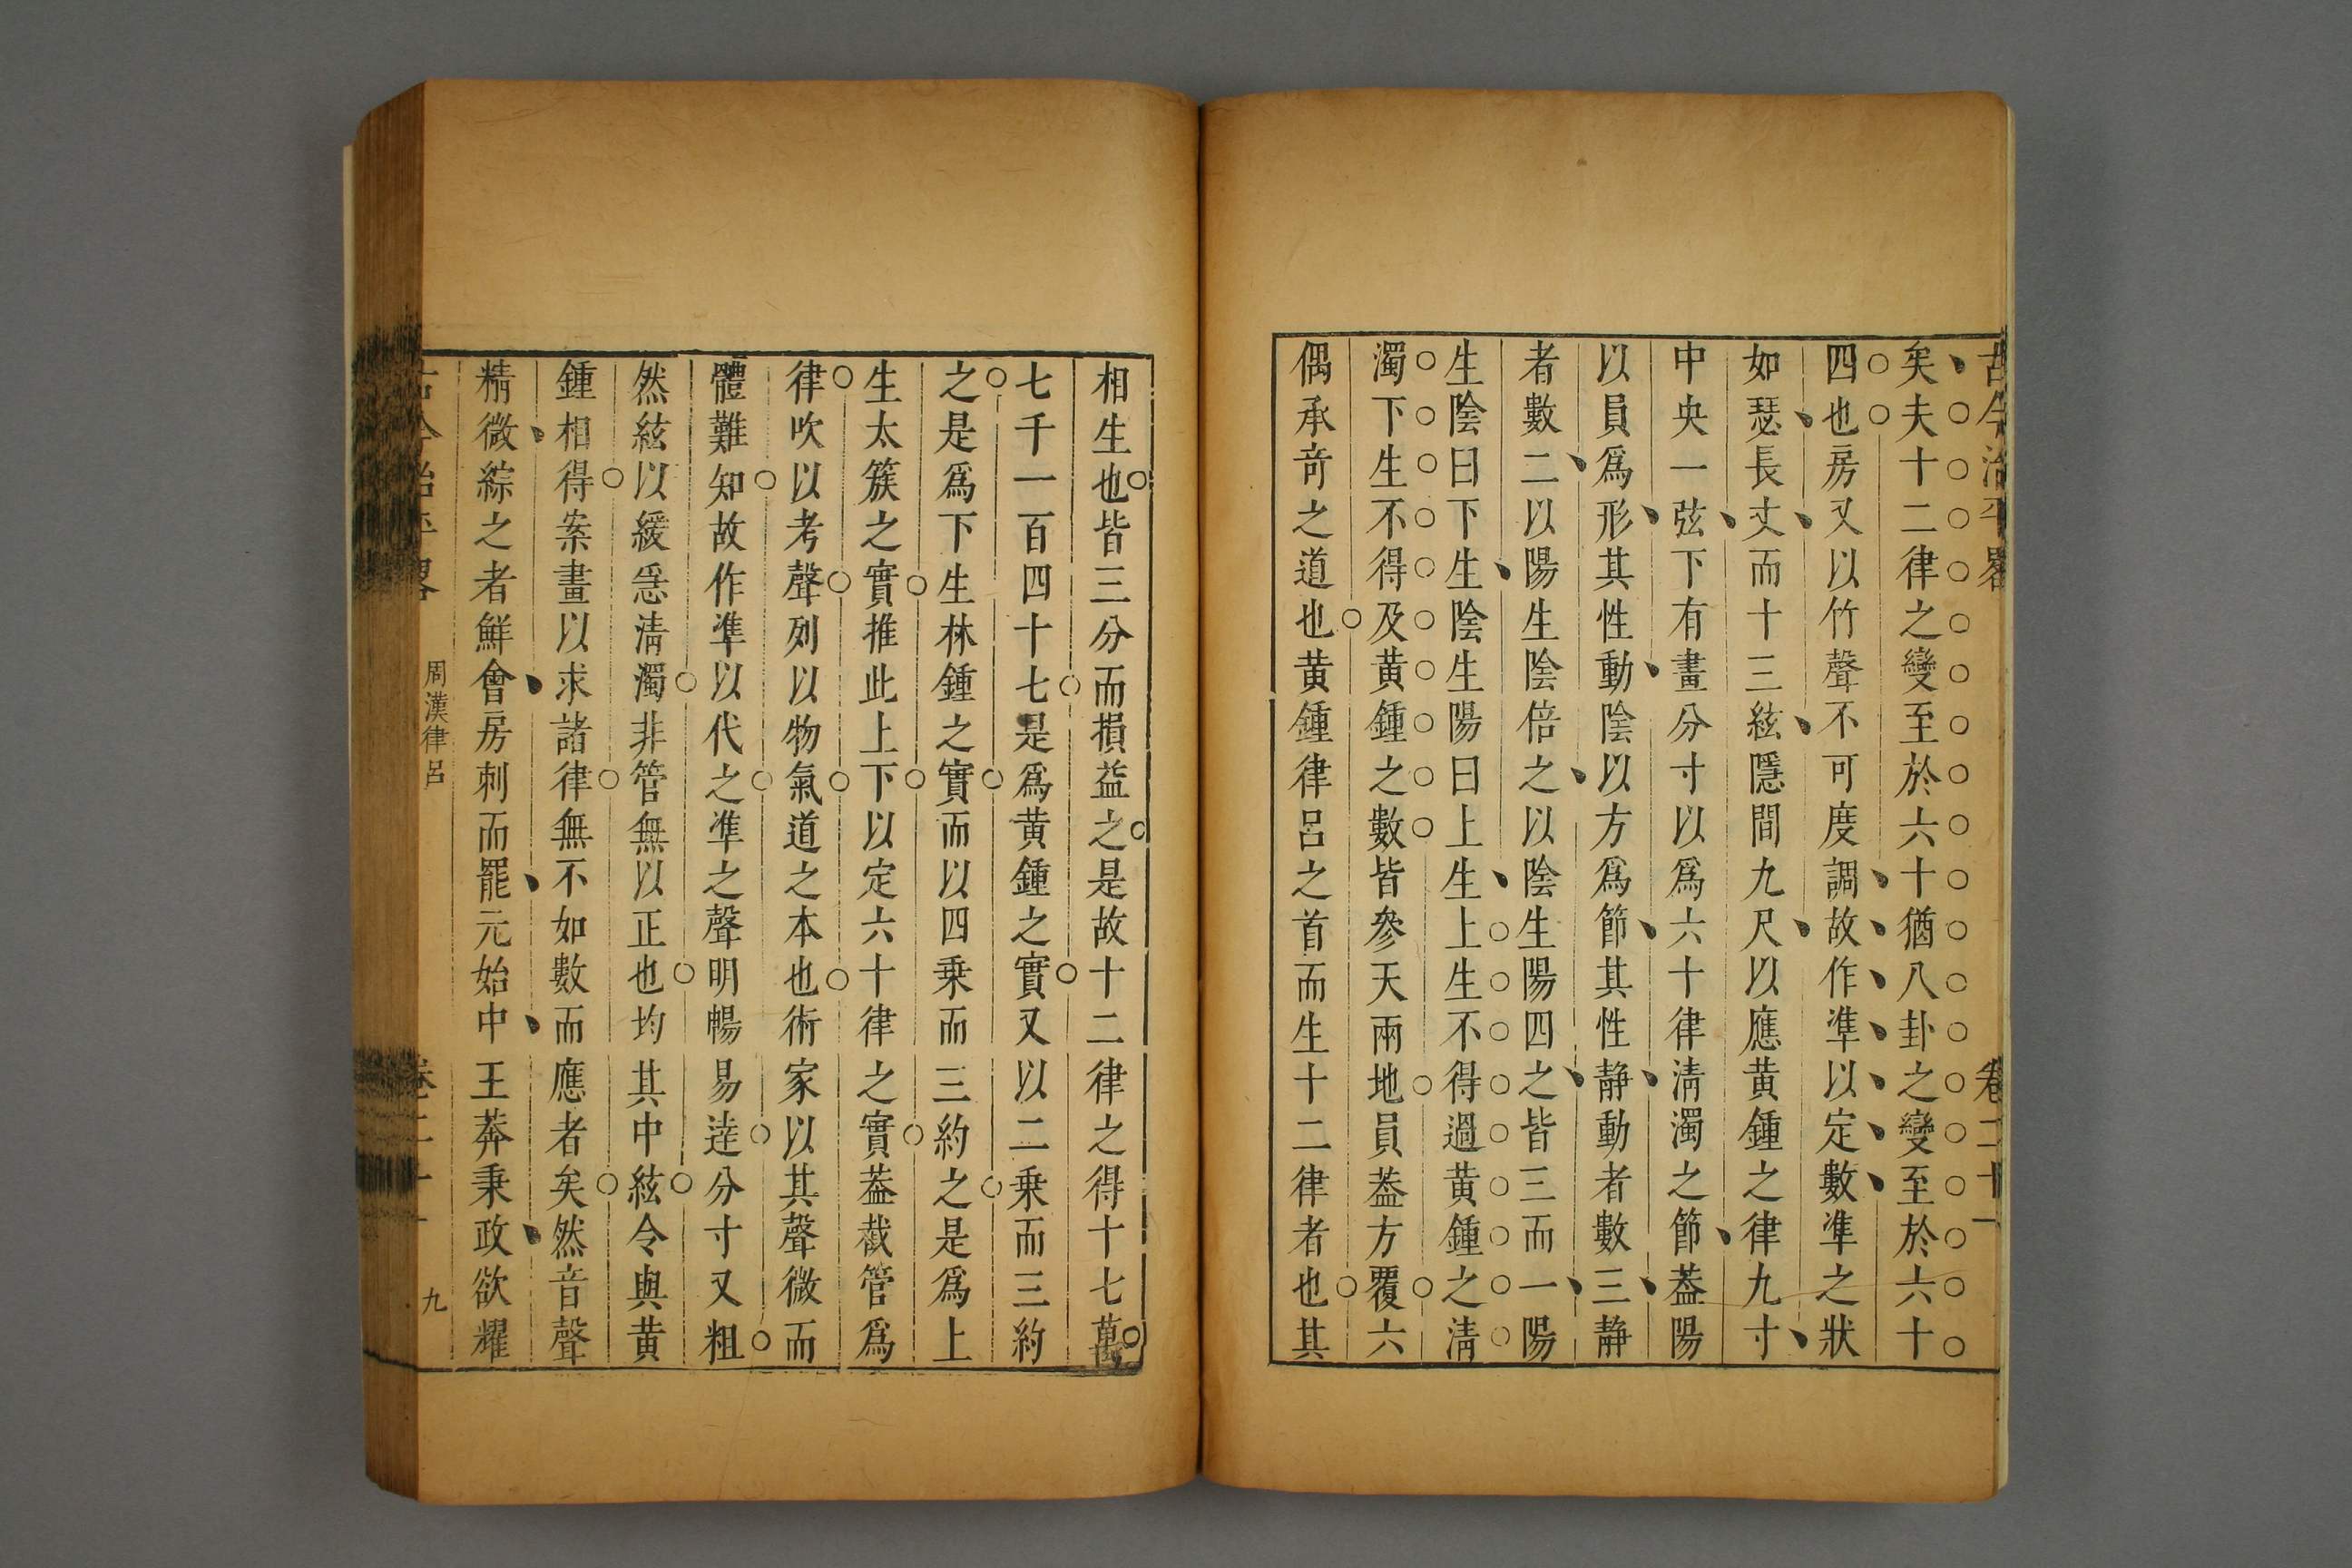 古今治平畧 卷二十一
矣夫十二律之變至於六十猶八卦之變至於六十
四也房又以竹聲不可度調故作準以定數準之狀
如瑟長丈而十三絃隱間九尺以應黃鍾之律九寸
中央一弦下有畫分寸以爲六十律淸濁之節葢陽
以員爲形其性動陰以方爲節其性靜動者數三靜
者數二以陽生陰倍之以陰生陽四之皆三而一陽
生陰曰下生陰生陽曰上生上生不得過黃鍾之淸
濁下生不得及黃鍾之數皆參天兩地員葢方覆六
偶承奇之道也黃鍾律呂之首而生十二律者也其
相生也皆三分而損益之是故十二律之得十七萬
七千一百四十七是爲黃鍾之實又以二乗而三約
之是爲下生林鍾之實而以四乗而三約之是爲上
生太簇之實推此上下以定六十律之實葢截管爲
律吹以考聲列以物氣道之本也術家以其聲微而
體難知故作準以代之準之聲明暢易逹分寸又粗
然絃以緩急淸濁非管無以正也均其中絃令與黃
鍾相得案畫以求諸律無不如數而應者矣然音聲
精微綜之者鮮會房刺而罷元始中王莽秉政欲耀
古今治平畧 周漢律呂 卷二十一 九